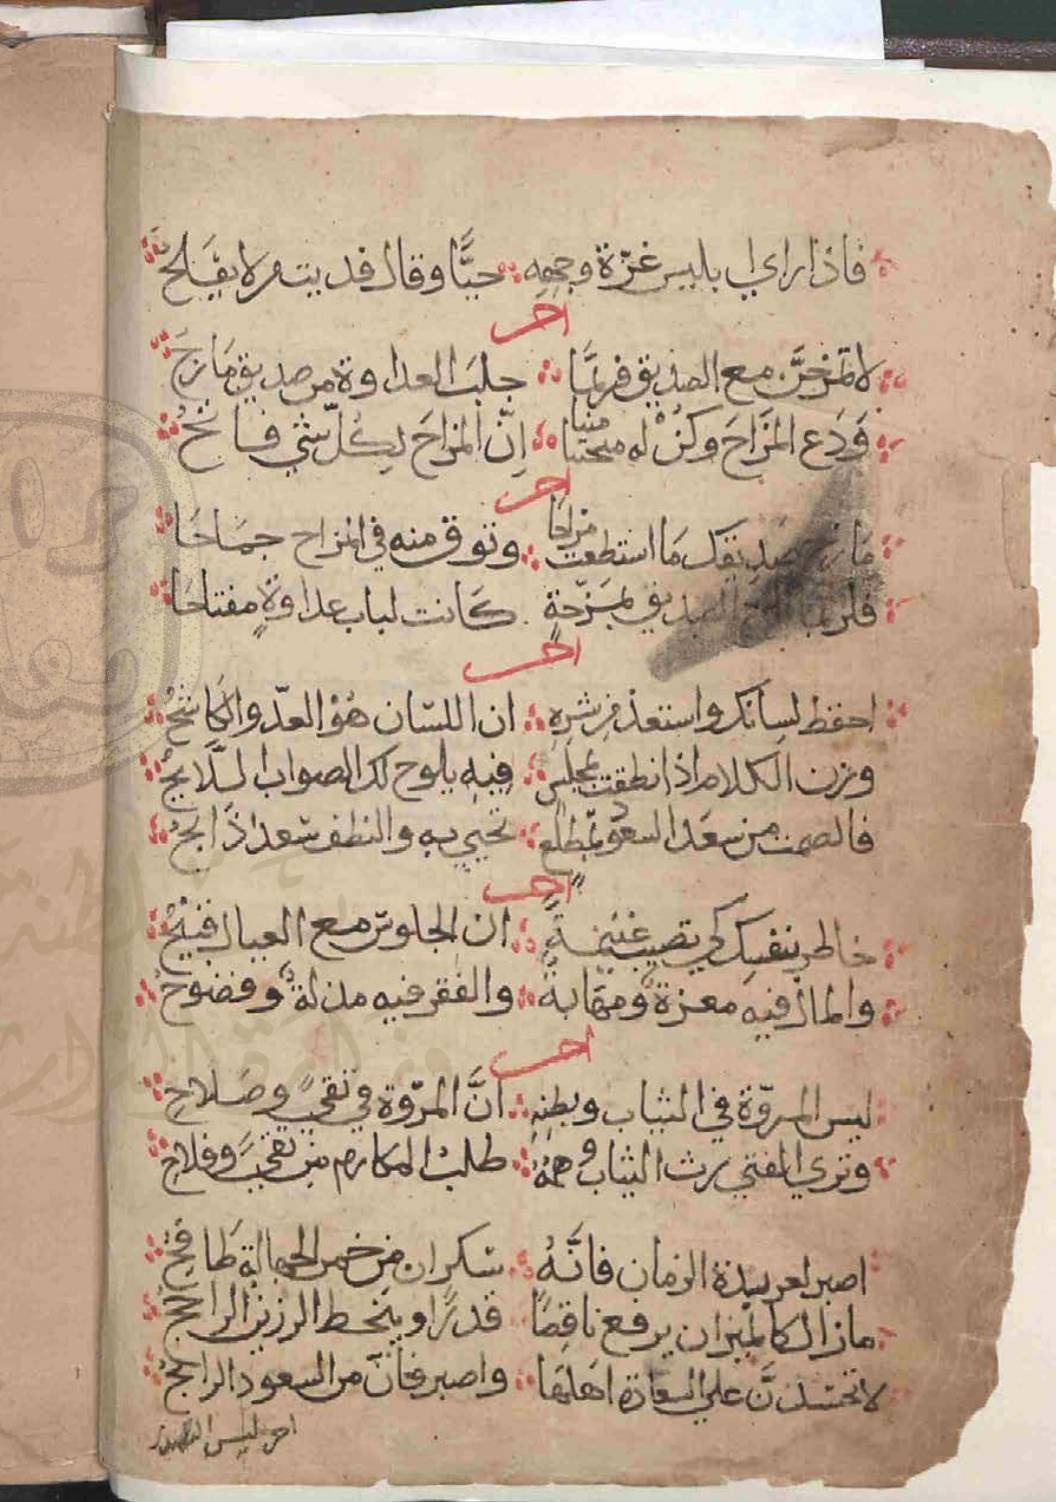 فاذا راي ابليس غرّة وجهه حيًّا وقال فديت من لا يفلح
اخر
لا تمزحنَّ مع الصديق فربّما جلبَ العداوة من صديق مازحَ
وَدَع المزَاحَ وكنْ له متجنبا اِنّ المزاحَ لِكُلّ شيء فاتحُ
اخر
مازح صديقك مَا استطعت مزاحَا وتوق منه في المزاح جمَاحَا
فلربما الصديق بمَزحةٍ كَانت لباب عداوةٍ مفتاحَا
اخر
احفظ لِسانك واستعذ من شرِه ان اللسان هوَ العدّو الكاشحُ
وزن الكلام اذا نطقت بمجلس فيه يلوح لك الصواب اللايحُ
فالصمت من سَعد السعود بمطلع تحيي به والنطق سَعد ذابحُ
اخر
خاطر بنفسِك كي تصيب غنيمةً ان الجلوسَ مع العيال قبيحُ
والمال فيه معزة ومهابةٌ والفقر فيه مذلةٌ وفضُوحُ
اخر
ليس المروّة في الثياب وبطنِهِ انَّ المروّة في تقيً وصَلاحِ
وتري الفتي رث الثياب وهمهُ طلبُ المكارم من تقيً وفلاحِ
اصبر لعربدة الزمان فانَّهُ سكران من خمر الجهالة طافحُ
مازال كالميزان يرفع ناقِصًا قدرًا ويحط الرزين الراجحُ
لا تحسدنَّ علي السعادة اهلهَا واصبر فانّ من السعود الرابحُ
اخر ليس